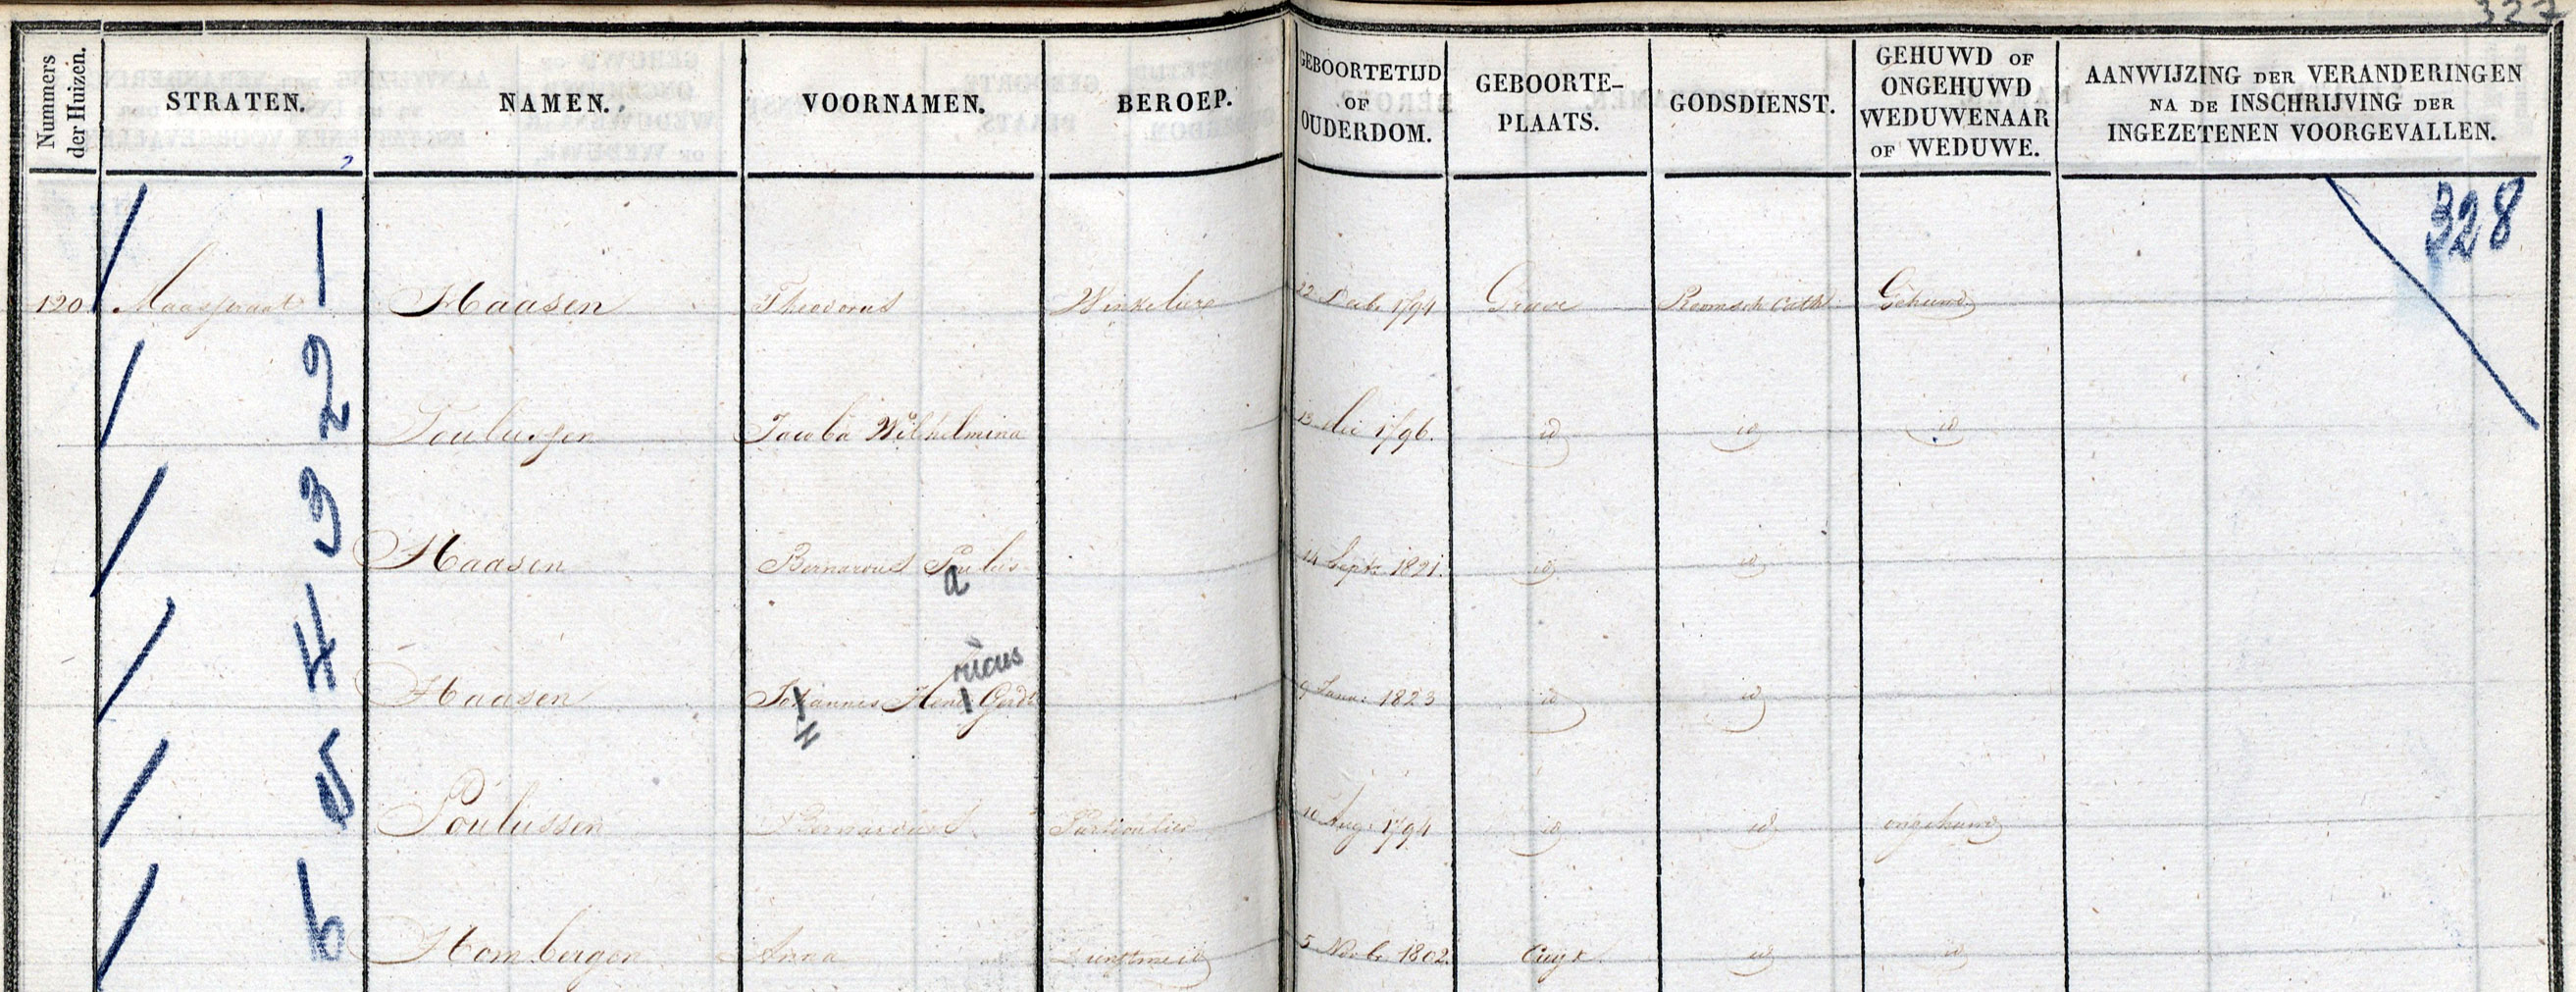 327
Nummers der Huizen. STRATEN. NAMEN. VOORNAMEN. BEROEP. GEBOORTETIJD OF OUDERDOM. GEBOORTE-PLAATS. GODSDIENST. GEHUWD OF ONGEHUWD WEDUWENAAR OF WEDUWE. AANWIJZING DER VERANDERINGEN NA DE INSCHRIJVING DER INGEZETENEN VOORGEVALLEN.
328
120 Maasstraat 1 Haasen Theodorus Winkelier 22 Decb. 1794 Grave Roomsch Cath Gehuwd
2 Poulussen Jacoba Wilhelmina 13 dec 1796. id id id
3 Haasen Bernardus Poulus a 14 Septr. 1821. id id
ricus
4 Haasen Johannes Hend Gerd 9 Janu: 1823 id id
5 Poulussen Bernardus Particulier 10 Aug: 1794 id id ongehuwd
6 Hombergen Anna Dienstmeid 5 Novb. 1802. Cuyk id id